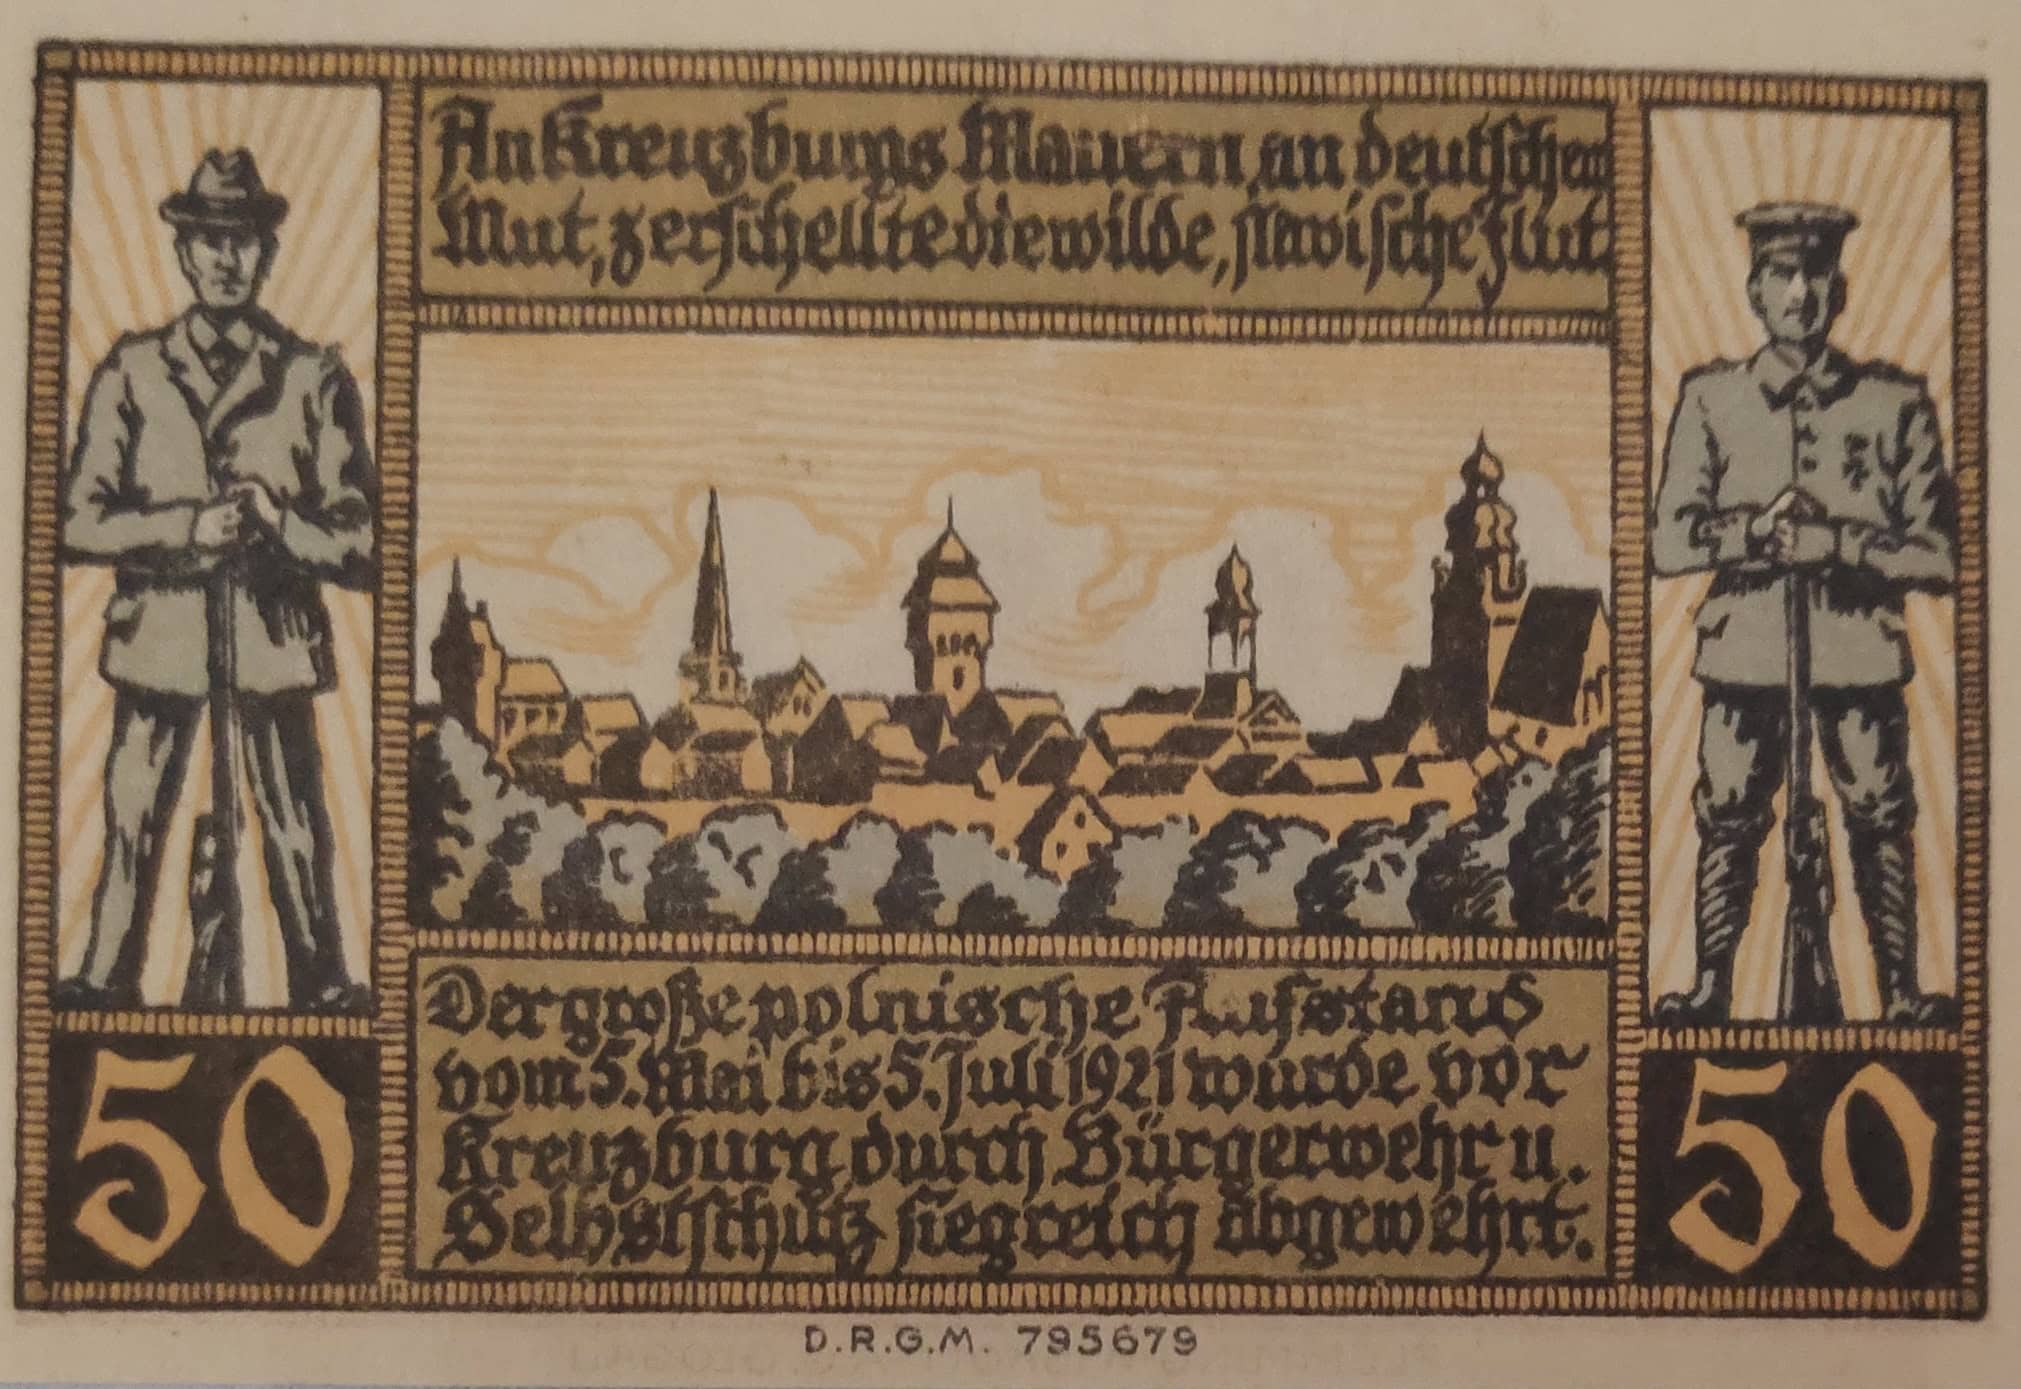 An Kreuzburgs Mauern, an deutschem
Mut, zerschellte die wilde, slawische Flut.
Der große polnische Aufstand
vom 5. Mai bis 5. Juli 1921 wurde vor
Kreuzburg durch Bürgerwehr u.
Selbstschutz siegreich abgewehrt.
50
50
D.R.G.M. 795679